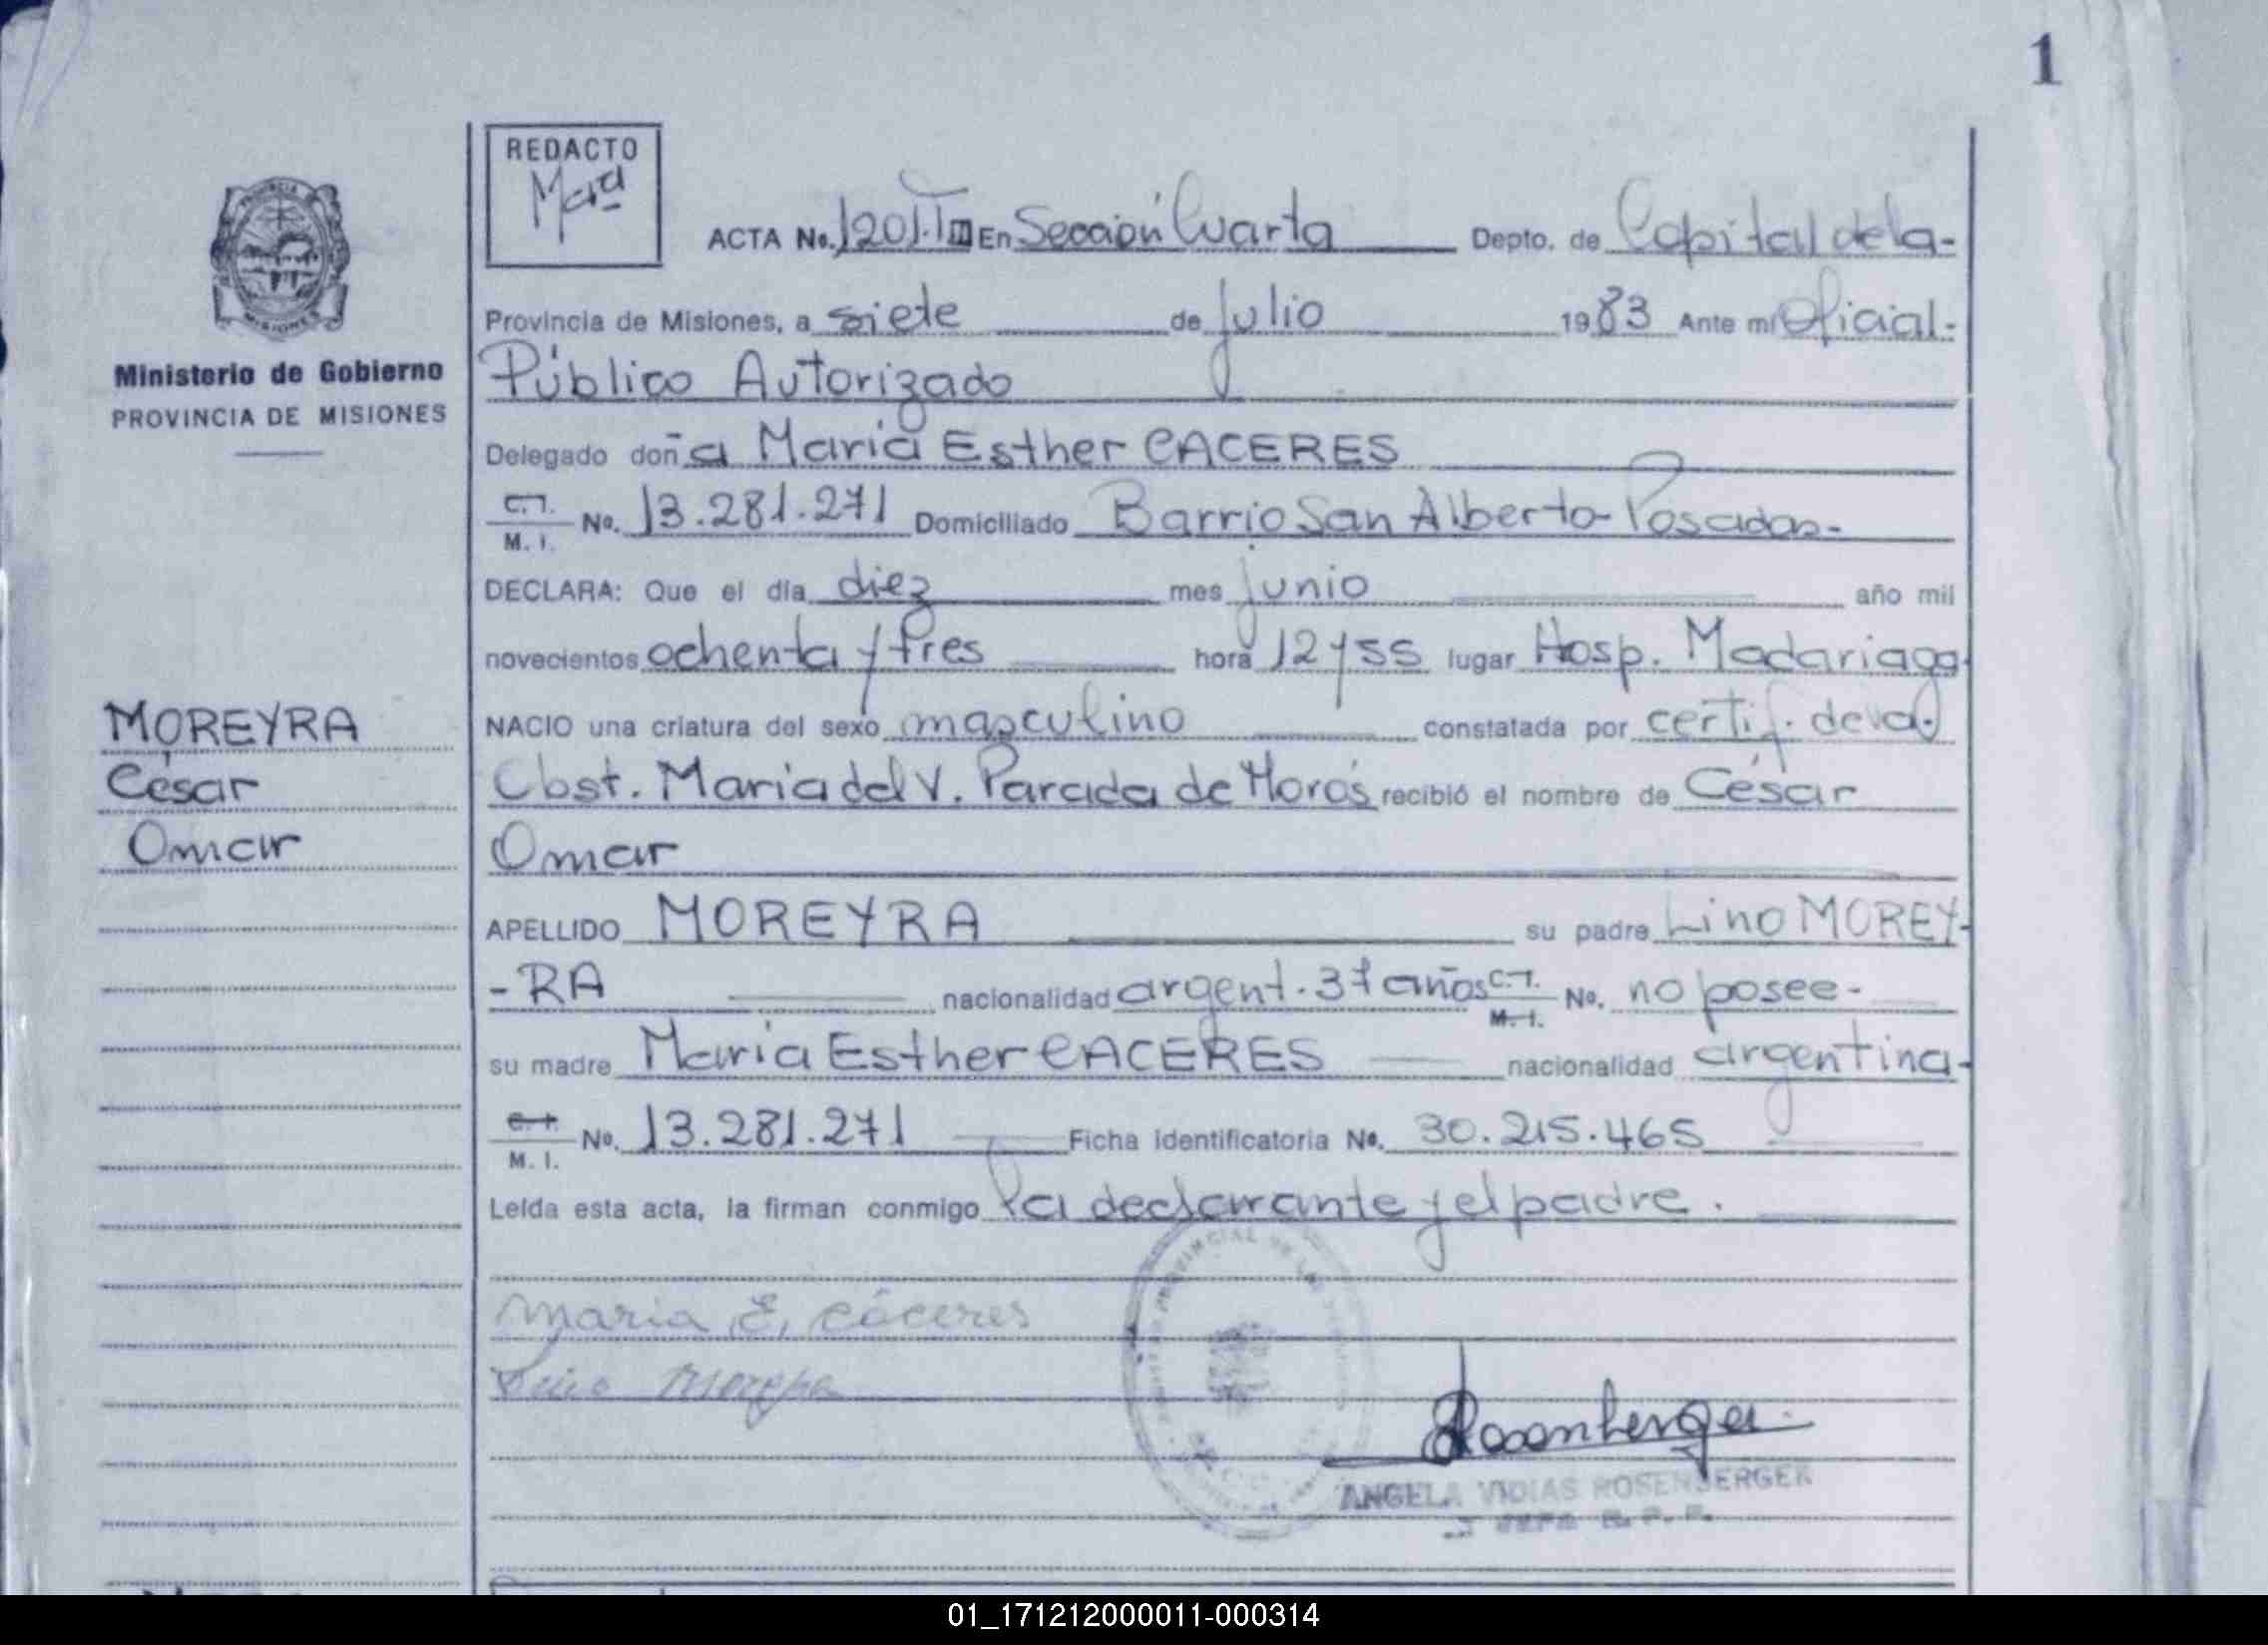 1
REDACTO
Mara
ACTA No. 1201.T III En Sección Cuarta Depto. de Capital de la-
Provincia de Misiones, a siete de julio 1983 Ante mí Oficial-
Público Autorizado
Ministerio de Gobierno
PROVINCIA DE MISIONES
Delegado doña María Esther CACERES
C.I. M. I. No. 13.281.271 Domiciliado Barrio San Alberto-Posadas-
DECLARA: Que el día diez mes junio año mil
novecientos ochenta y tres hora 12 y 55 lugar Hosp. Madariaga
MOREYRA
César
Omar
NACIO una criatura del sexo masculino constatada por certif. de la
Obst. María del V. Parada de Morás recibió el nombre de César
Omar
APELLIDO MOREYRA su padre Lino MOREY-
-RA nacionalidad argent. 37 años C.I. M. I. No. no posee-
su madre María Esther CACERES nacionalidad argentina-
C.I. M. I. No. 13.281.271 Ficha Identificatoria No. 30.215.465
Leída esta acta, la firman conmigo la declarante y el padre.
Maria E, Cáceres
Lino Moreyra
Rosenberger
ANGELA VIDIAS ROSENBERGER
JEFA R. P. P.
01_171212000011-000314